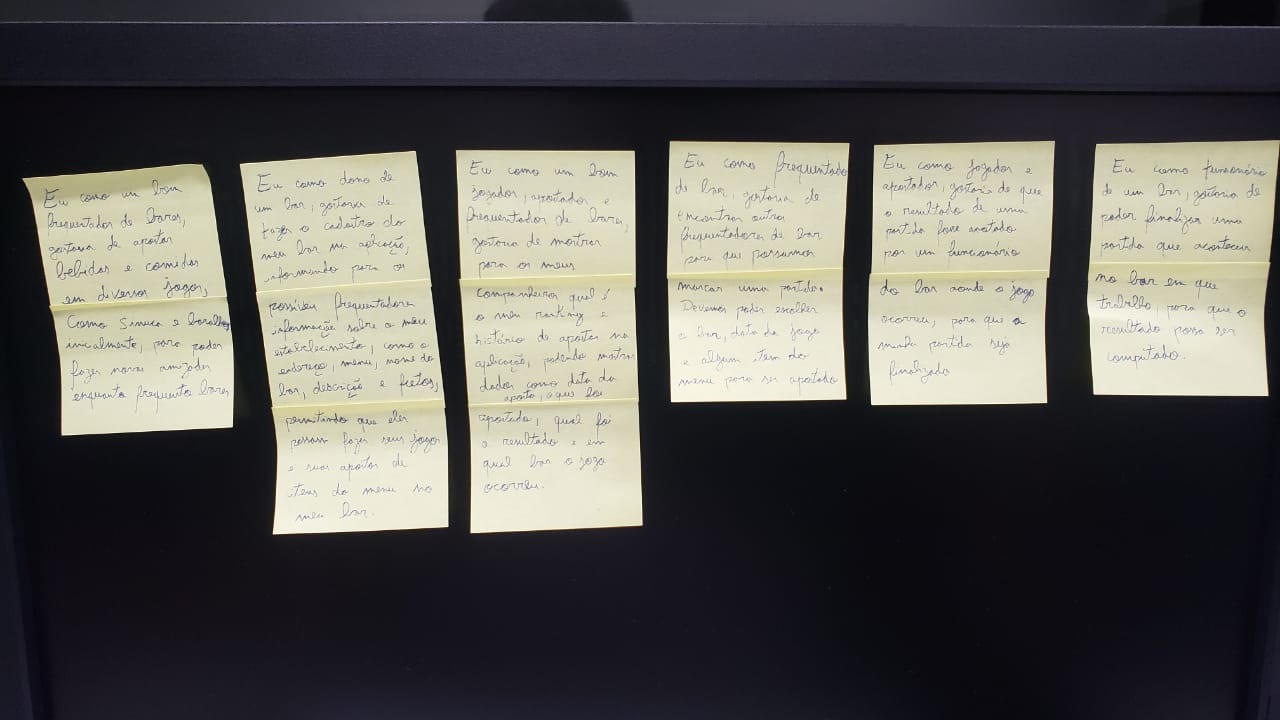 Eu como um bom
frequentador de bares,
gostaria de apostar
bebidas e comidas
em diversos jogos,
Como Sinuca e baralho
inicialmente, para poder
fazer novas amizades
enquanto frequento bares
Eu como dono de
um bar, gostaria de
fazer o cadastro do
meu bar na aplicação,
informando para os
possíveis frequentadores
informações sobre o meu
estabelecimento, como o
endereço, menu, nome do
bar, descrição e fotos,
permitindo que eles
possam fazer seus jogos
e suas apostas de
itens do menu no
meu bar.
Eu como um bom
jogador, apostador e
frequentador de bares,
gostaria de mostrar
para os meus
companheiros qual é
o meu ranking e
histórico de apostas na
aplicação, podendo mostrar
dados como data da
aposta, o que foi
apostado, qual foi
o resultado e em
qual bar o jogo
ocorreu.
Eu como frequentador
de bar, gostaria de
encontrar outros
frequentadores de bar
para que possamos
marcar uma partida.
Devemos poder escolher
o bar, data do jogo
e algum item do
menu para ser apostado
Eu como jogador e
apostador, gostaria de que
o resultado de uma
partida fosse anotado
por um funcionário
do bar aonde o jogo
ocorreu, para que a
minha partida seja
finalizada
Eu como funcionário
de um bar, gostaria de
poder finalizar uma
partida que aconteceu
no bar em que
trabalho, para que o
resultado possa ser
computado.